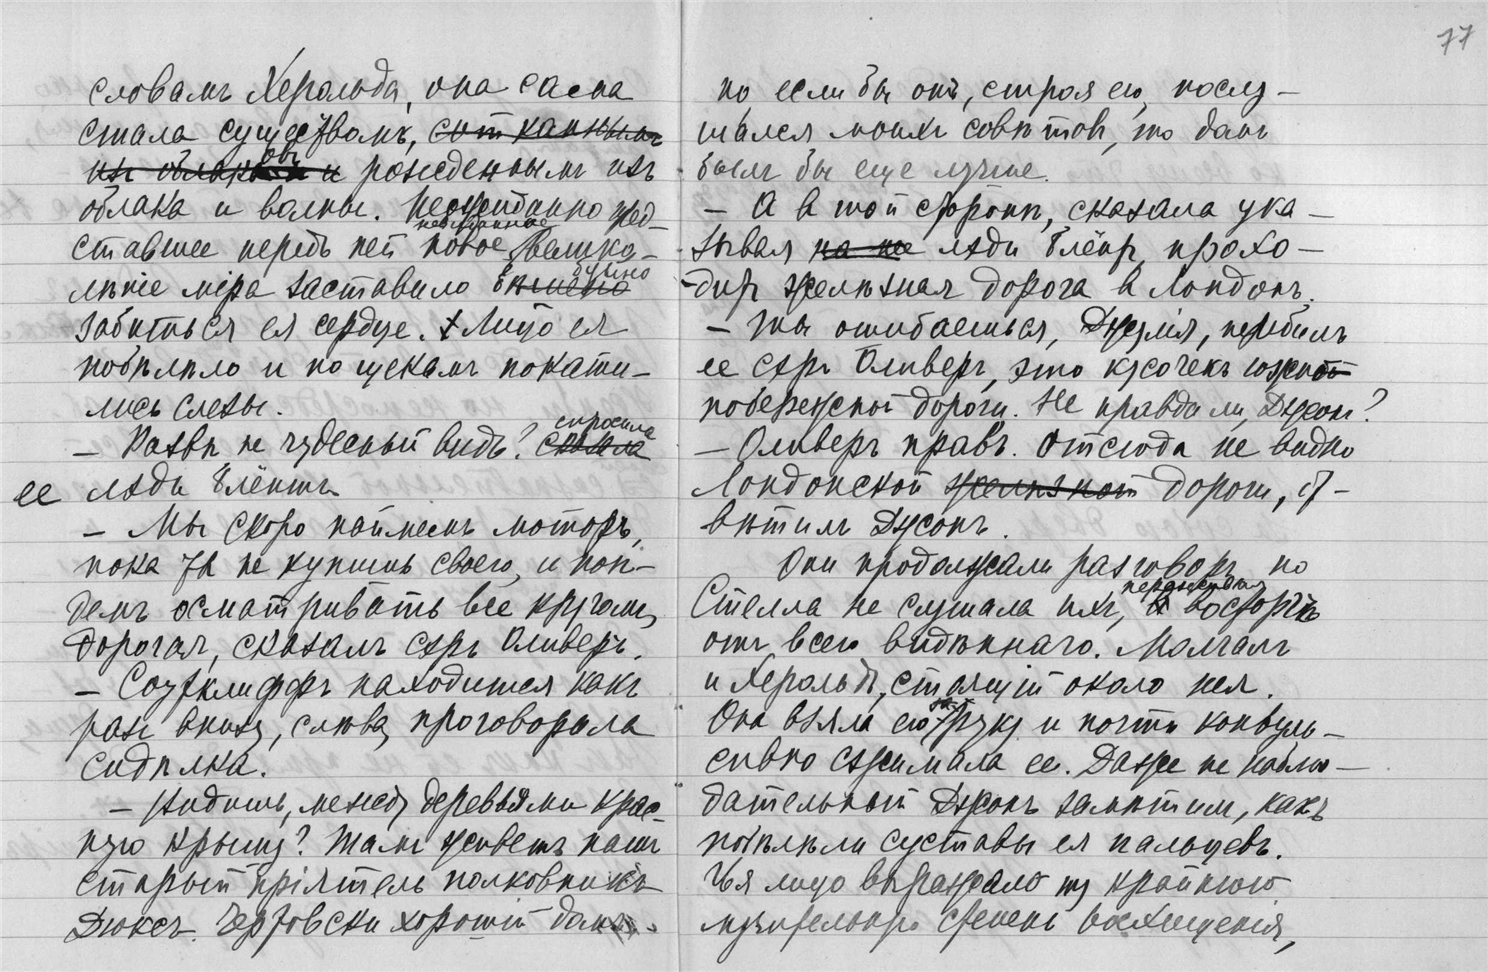 словамъ Херольда, она сама
стала существомъ, сотканнымъ
изъ облаковъ и рожденнымъ изъ
облака и волны. Неожиданно пред-
ставшее передъ ней новое невиданное велико-
лѣпіе міра заставило бѣшено бурно
забиться ея сердце. Лицо ея
побѣлѣло и по щекамъ покати-
лись слезы.
— Развѣ не чудесный видъ? сказала спросила
ее лэди Блёнтъ
— Мы скоро наймемъ моторъ,
пока ты не купишь своего, и пой-
демъ осматривать все кругомъ,
дорогая, сказалъ сэръ Оливеръ.
— Соутклиффъ находится какъ
разъ внизу, слѣва, проговорила
сидѣлка.
— Видишь, между деревьями крас-
ную крышу? Тамъ живетъ нашъ
старый пріятель полковникъ
Дюксъ. Чертовски хорошій домъ.
77
но если бы онъ, строя его, послу-
шался моихъ совѣтовъ, то домъ
былъ бы еще лучше.
— А въ той сторонѣ, сказала ука-
зывая на нее лэди Блёнтъ, прохо-
дитъ желѣзная дорога въ Лондонъ.
— Ты ошибаешься, Джулія, перебилъ
ее сэръ Оливеръ, это кусочекъ южной
побережной дороги. Не правда ли, Джонъ?
— Оливеръ правъ. Отсюда не видно
Лондонской желѣзной дороги, от-
вѣтилъ Джонъ.
Они продолжали разговоръ, но
Стелла не слушала ихъ, въ восторгѣ
отъ всего видѣннаго. Молчалъ
и Херольдъ, стоящій около нея.
Она взяла его за руку и почти конвуль-
сивно сжимала ее. Даже не наблю-
дательный Джонъ замѣтилъ, какъ
побѣлѣли суставы ея пальцевъ.
Ея лицо выражало ту крайнюю
мучительную степень восхищенія,